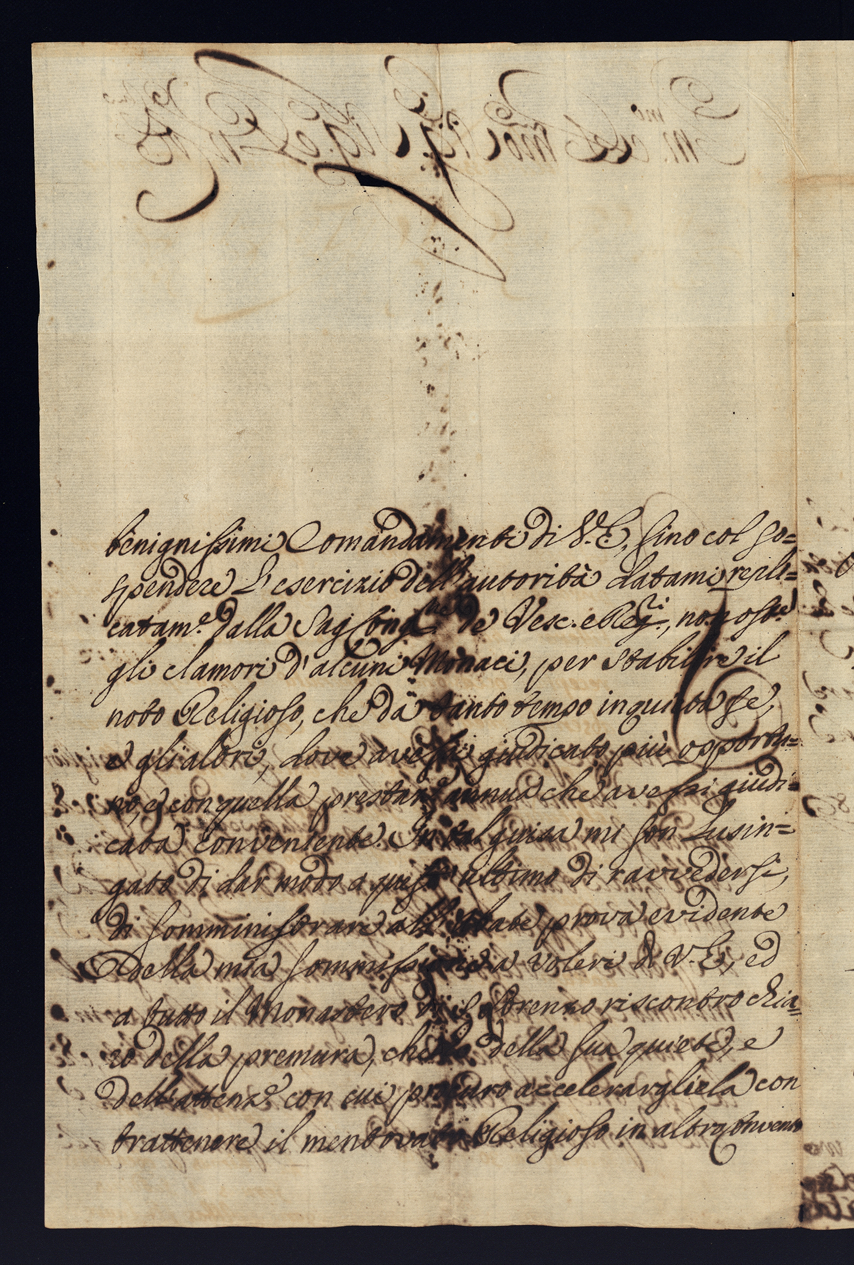 benignissimi Comandamenti di V.E., sino col so=
spendere l'esercizio dell'autorità datami repli=
catam.e dalla Sag. Cong.ne de' Vesc. e Reg.ri, nonost.e
gli clamori d'alcuni Monaci, per stabilire il
noto Religioso, che da tanto tempo inquieta se,
e gli altri, dove avessi giudicato più opportu=
no, e con quella prestan annua che avessi giudi=
cata conveniente. In tal guisa mi son lusin=
gato di dar modo a quest'ultimo di ravvedersi,
di somministrare all'Abate prova evidente
della mia sommissione a voleri di V.E., ed
a tutto il Monastero di S. Lorenzo riscontro chia=
ro della premura, che ho della sua quiete, e
dell'attenz.e con cui procuro accelerargliela con
trattenere il mentovato Religioso in altro